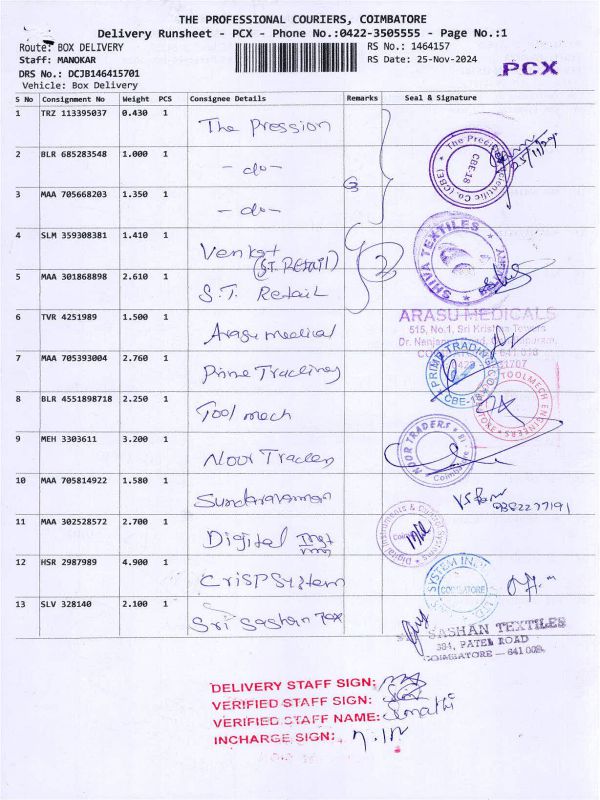 THE PROFESSIONAL COURIERS, COIMBATORE
Delivery Runsheet - PCX - Phone No.:0422-3505555 - Page No.:1
Route: BOX DELIVERY
RS No.: 1464157
Staff: MANOKAR
RS Date: 25-Nov-2024
PCX
DRS No.: DCJB146415701
Vehicle: Box Delivery
S No Consignment No Weight PCS Consignee Details Remarks Seal & Signature
1 TRZ 113395037 0.430 1 The Pression
2 BLR 685283548 1.000 1 - do -
3 MAA 705668203 1.350 1 - do -
3
The Scientific Co. (CBE) CBE-18
25/11/24
4 SLM 359308381 1.410 1 Venkat (S.T. RETAIL)
2
SHIVA TEXTILES
5 MAA 301868898 2.610 1 S.T. Retail
6 TVR 4251989 1.500 1 Arasu medical
ARASU MEDICALS
515, No.1, Sri Krishna Towers
7 MAA 705393004 2.760 1 Prime Tradings
PRIME TRADING CO. CBE-18
8 BLR 4551898718 2.250 1 Tool mech
TOOLMECH ENGINEERS
9 MEH 3303611 3.200 1 Noor Traders
NOOR TRADERS Coimbatore
10 MAA 705814922 1.580 1 Sundararaman
11 MAA 302528572 2.700 1 Digital Inst
Digital Instruments & Control Systems
12 HSR 2987989 4.900 1 CRISP System
SYSTEM COIMBATORE
13 SLV 328140 2.100 1 Sri Sashan Tex
SASHAN TEXTILES
384, PATEL ROAD
COIMBATORE - 641 009.
DELIVERY STAFF SIGN:
VERIFIED STAFF SIGN:
VERIFIED STAFF NAME:
INCHARGE SIGN: